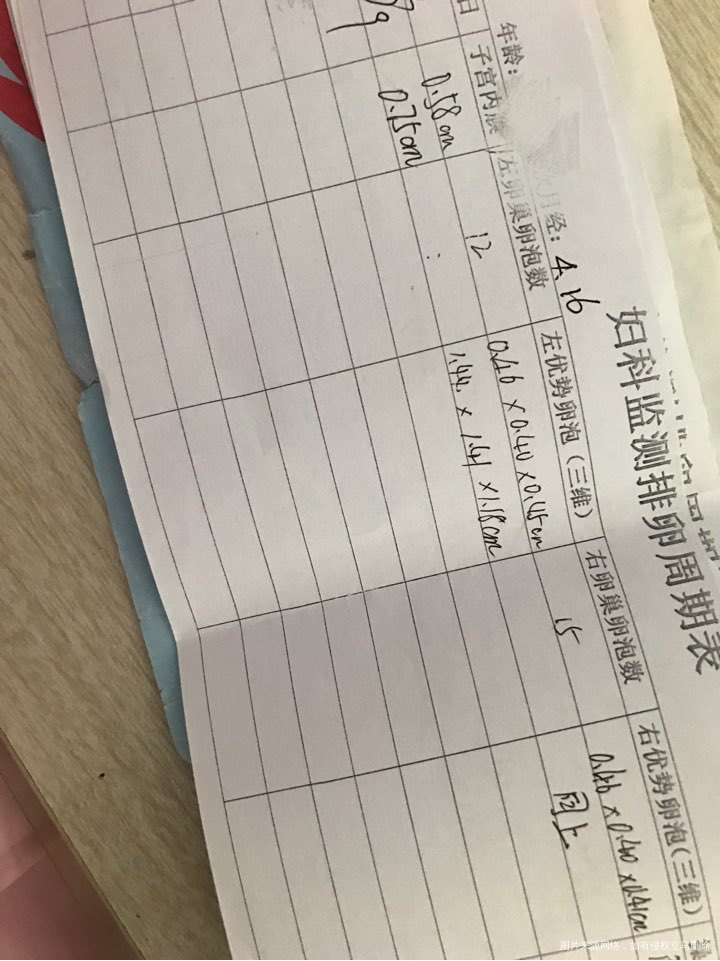 妇科监测排卵周期表
年龄： 月经：4.16
日 子宫内膜 左卵巢卵泡数 左优势卵泡（三维） 右卵巢卵泡数 右优势卵泡（三维）
0.58cm 12 0.46×0.40×0.45cm 15 0.46×0.40×0.41cm
0.75cm 1.44×1.41×1.18cm 同上
图片来源网络，如有侵权立马删除